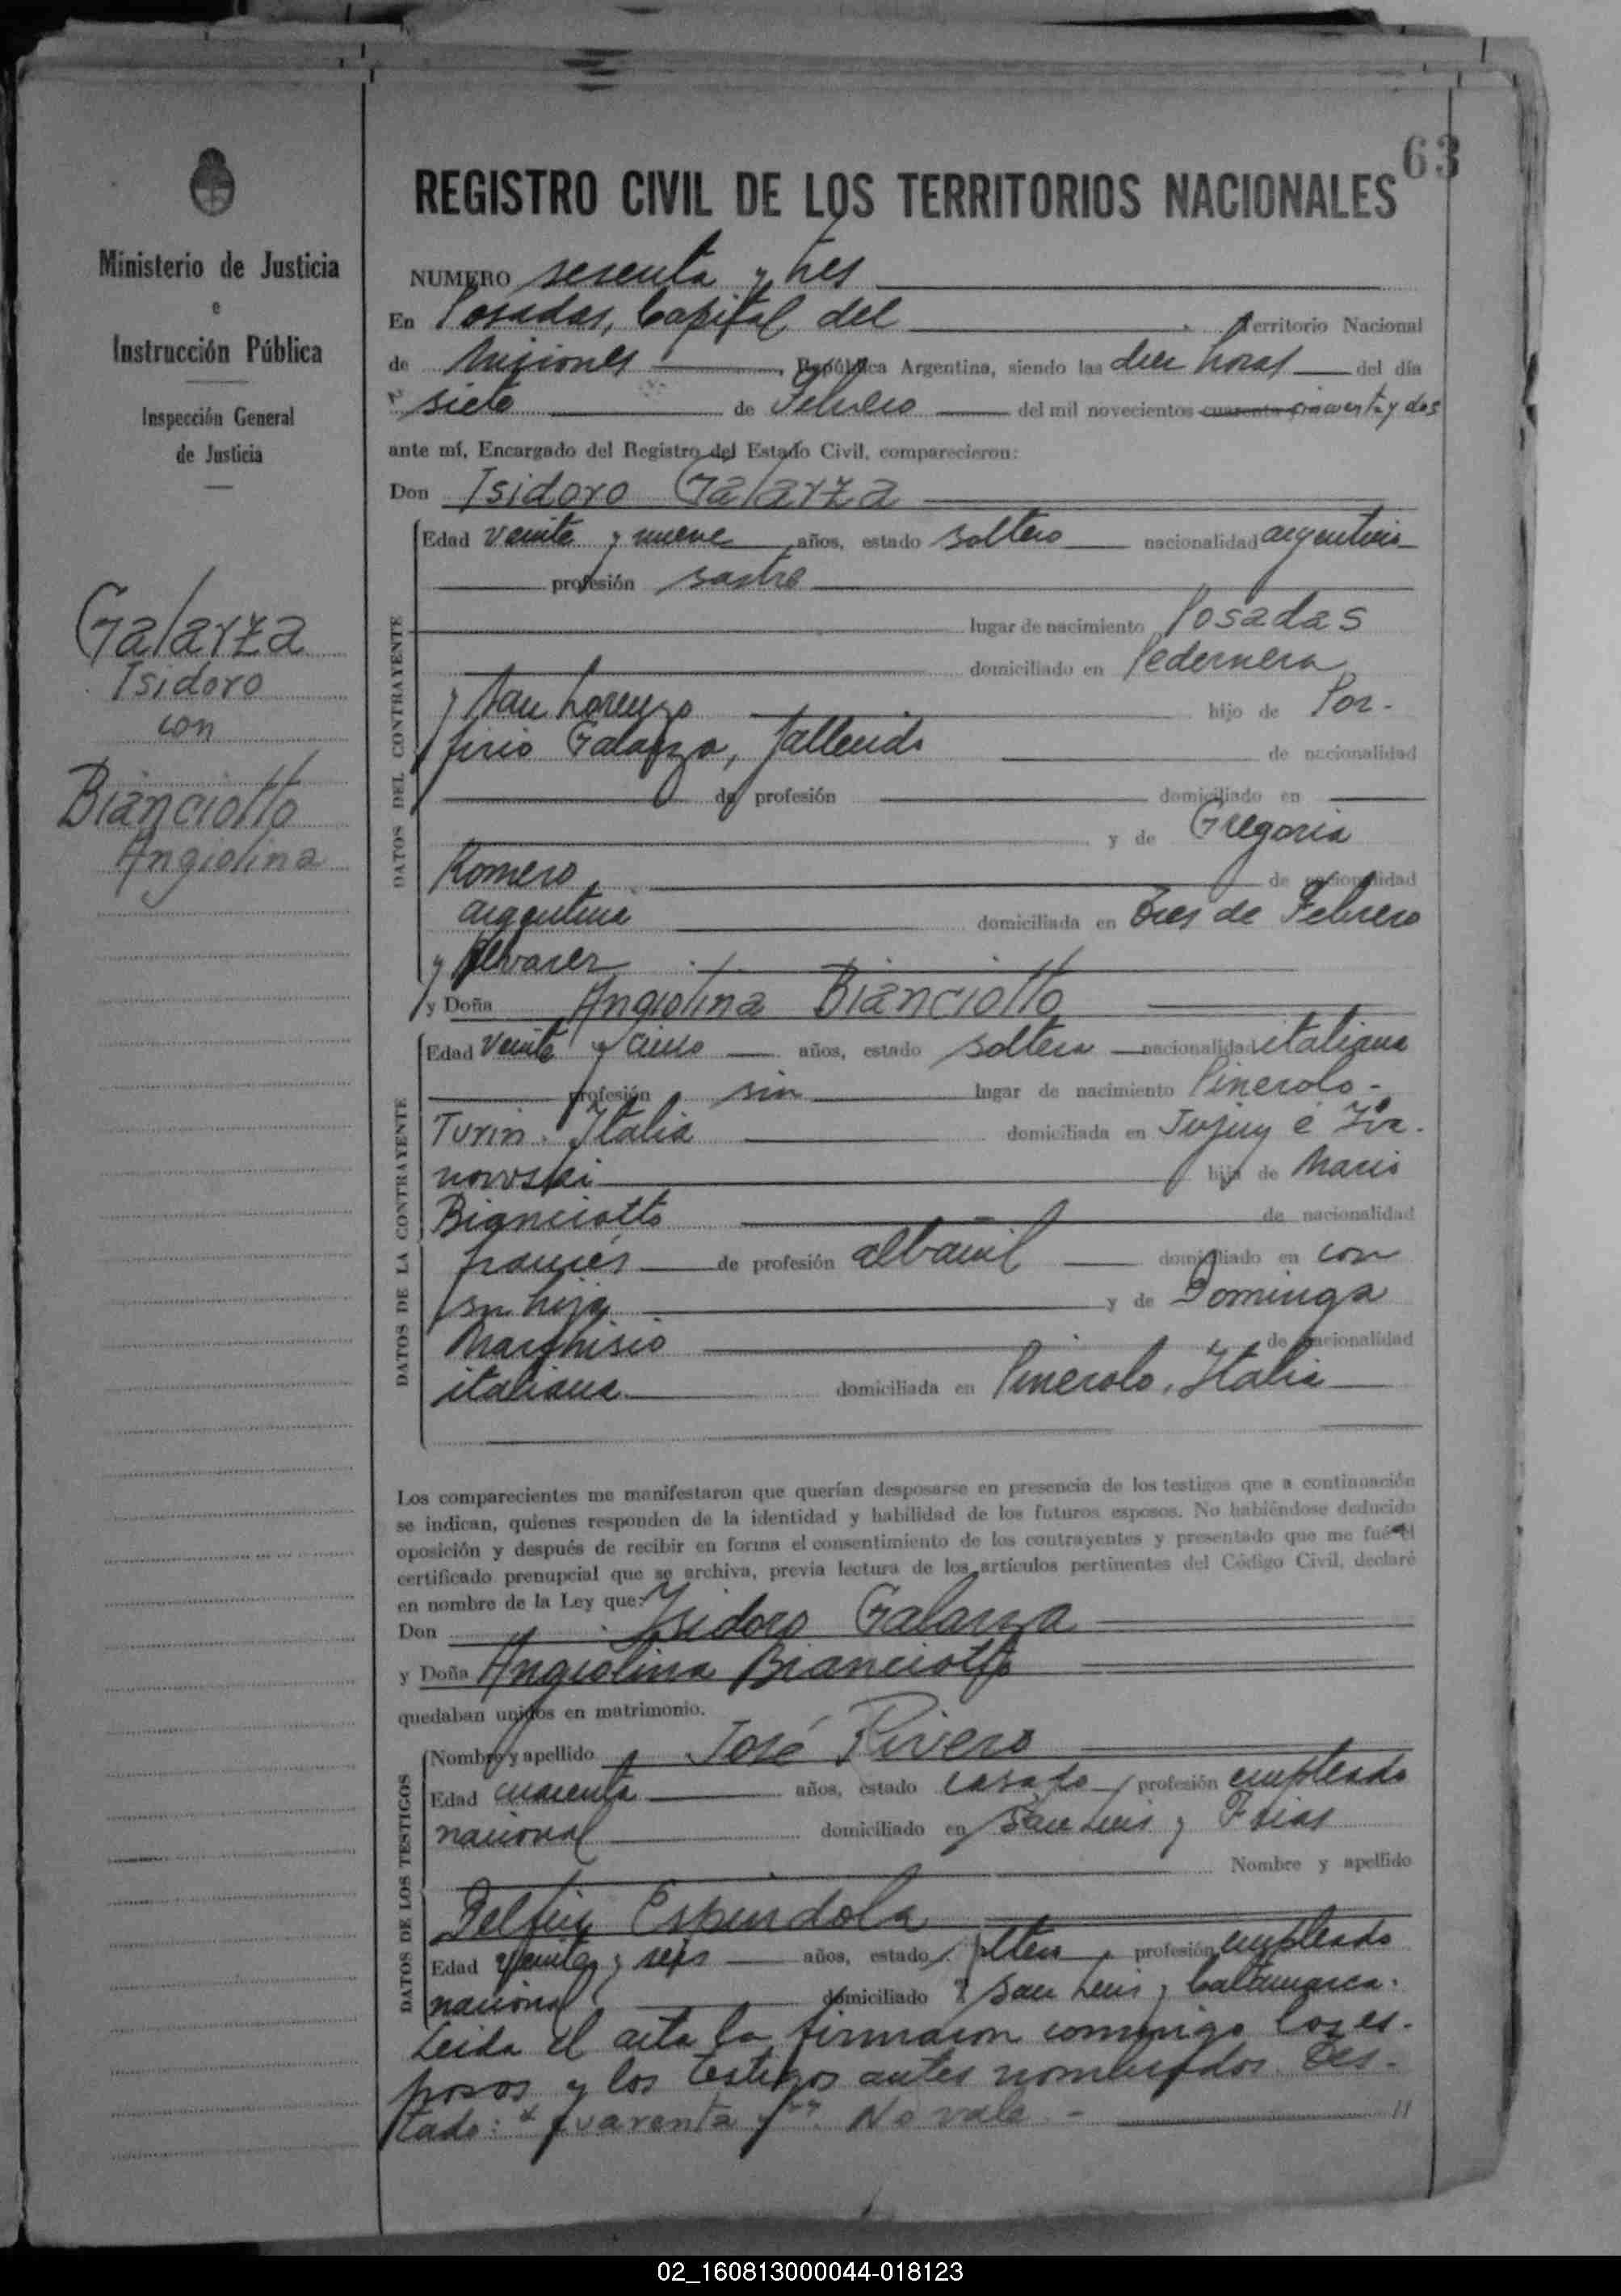 63
Ministerio de Justicia
e
Instrucción Pública
Inspección General
de Justicia
Galarza
Isidoro
con
Bianciotto
Angiolina
REGISTRO CIVIL DE LOS TERRITORIOS NACIONALES
NUMERO sesenta y tres
En Posadas, Capital del Territorio Nacional
de Misiones, República Argentina, siendo las diez horas del día
siete de Febrero del mil novecientos cuarenta cincuenta y dos
ante mí, Encargado del Registro del Estado Civil, comparecieron:
Don Isidoro Galarza
DATOS DEL CONTRAYENTE
Edad veinte y nueve años, estado soltero nacionalidad argentina
profesión sastre
lugar de nacimiento Posadas
domiciliado en Pedernera
y San Lorenzo hijo de Por-
firio Galarza, fallecido de nacionalidad
de profesión domiciliado en
y de Gregoria
Romero de nacionalidad
argentina domiciliada en Tres de Febrero
y Alvarez
y Doña Angiolina Bianciotto
DATOS DE LA CONTRAYENTE
Edad veinte y cinco años, estado soltera nacionalidad italiana
profesión sin lugar de nacimiento Pinerolo-
Turin. Italia domiciliada en Jujuy é
nowski hija de Mario
Bianciotto de nacionalidad
francés de profesión albañil domiciliado en con
su hija y de Dominga
Marghisio de nacionalidad
italiana domiciliada en Pinerolo, Italia
Los comparecientes me manifestaron que querían desposarse en presencia de los testigos que a continuación
se indican, quienes responden de la identidad y habilidad de los futuros esposos. No habiéndose deducido
oposición y después de recibir en forma el consentimiento de los contrayentes y presentado que me fué el
certificado prenupcial que se archiva, previa lectura de los artículos pertinentes del Código Civil, declaré
en nombre de la Ley que:
Don Isidoro Galarza
y Doña Angiolina Bianciotto
quedaban unidos en matrimonio.
DATOS DE LOS TESTIGOS
Nombre y apellido José Rivero
Edad cuarenta años, estado casado profesión empleado
nacional domiciliado en San Luis y Frias
Nombre y apellido
Delfin Espindola
Edad veinte y seis años, estado soltero, profesión empleado
nacional domiciliado San Luis y Catamarca.
Leida el acta la firmaron conmigo los es-
posos y los testigos antes nombrados. Tes-
tado: "cuarenta y". No vale -
02_160813000044-018123